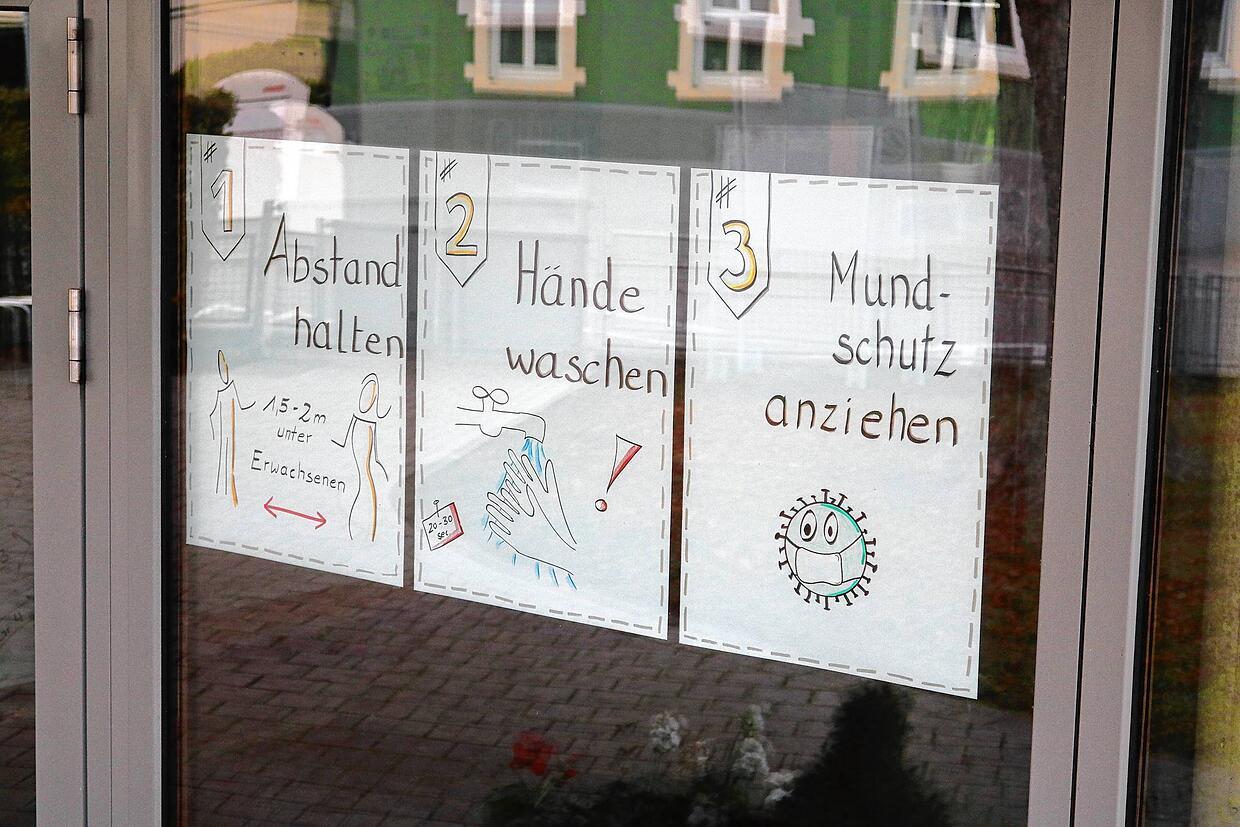 # 1
Abstand
halten
1,5-2m
unter
Erwachsenen
# 2
Hände
waschen
20-30
sec
# 3
Mund-
schutz
anziehen